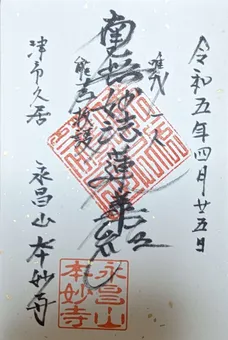 令和五年四月廿五日
唯我一人
南無妙法蓮華経
能為救護
津市久居
永昌山 本妙寺
永昌山
本妙寺